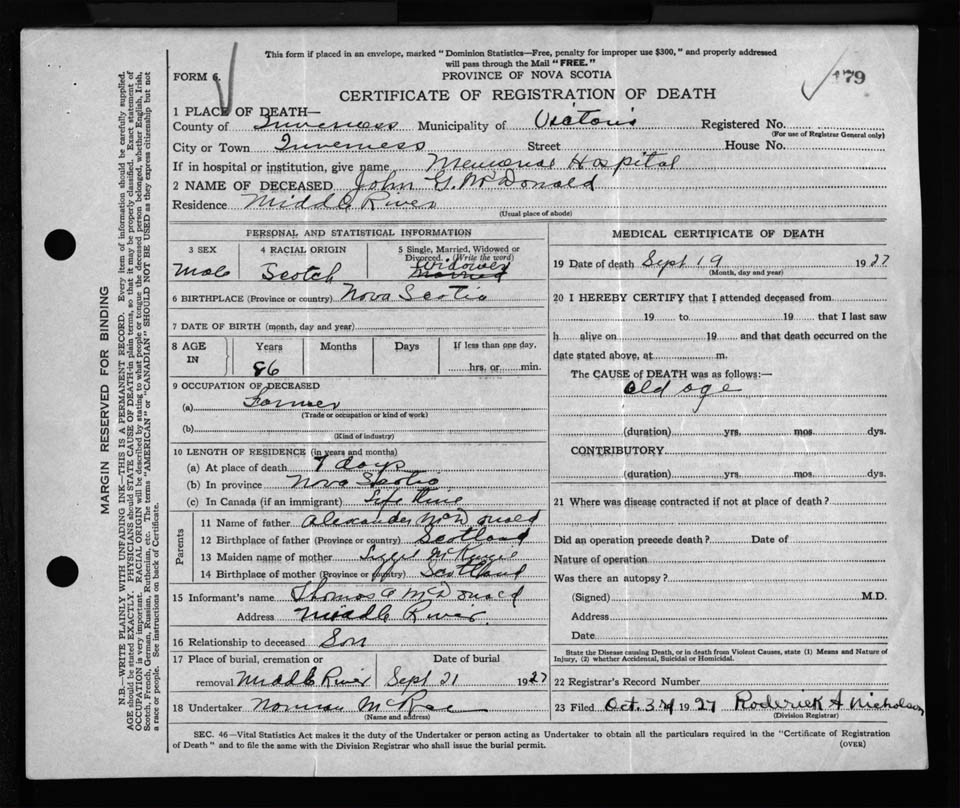 This form if placed in an envelope, marked "Dominion Statistics—Free, penalty for improper use $300," and properly addressed
will pass through the Mail "FREE."
PROVINCE OF NOVA SCOTIA
FORM 6.
179
CERTIFICATE OF REGISTRATION OF DEATH
1 PLACE OF DEATH—
County of Inverness Municipality of Victoria Registered No.
(For use of Registrar General only)
City or Town Inverness Street House No.
If in hospital or institution, give name Memorial Hospital
2 NAME OF DECEASED John G. McDonald
Residence Middle River
(Usual place of abode)
PERSONAL AND STATISTICAL INFORMATION
3 SEX 4 RACIAL ORIGIN 5 Single, Married, Widowed or
Divorced. (Write the word)
Male Scotch Widower
Married
6 BIRTHPLACE (Province or country) Nova Scotia
7 DATE OF BIRTH (month, day and year)
8 AGE IN Years Months Days If less than one day,
86 hrs. or min.
9 OCCUPATION OF DECEASED
(a) Farmer
(Trade or occupation or kind of work)
(b)
(Kind of industry)
10 LENGTH OF RESIDENCE (in years and months)
(a) At place of death 7 days
(b) In province Nova Scotia
(c) In Canada (if an immigrant) Life time
Parents
11 Name of father Alexander McDonald
12 Birthplace of father (Province or country) Scotland
13 Maiden name of mother
14 Birthplace of mother (Province or country) Scotland
15 Informant's name Thomas A McDonald
Address Middle River
16 Relationship to deceased Son
17 Place of burial, cremation or Date of burial
removal Middle River Sept 21 1927
18 Undertaker Norman McRae
(Name and address)
MEDICAL CERTIFICATE OF DEATH
19 Date of death Sept 19 1927
(Month, day and year)
20 I HEREBY CERTIFY that I attended deceased from
19 to 19 that I last saw
h alive on 19 and that death occurred on the
date stated above, at m.
The CAUSE of DEATH was as follows:—
old age
(duration) yrs. mos. dys.
CONTRIBUTORY
(duration) yrs. mos. dys.
21 Where was disease contracted if not at place of death?
Did an operation precede death? Date of
Nature of operation
Was there an autopsy?
(Signed) M.D.
Address
Date
State the Disease causing Death, or in death from Violent Causes, state (1) Means and Nature of
Injury, (2) whether Accidental, Suicidal or Homicidal.
22 Registrar's Record Number
23 Filed Oct. 3rd 1927 Roderick A Nicholson
(Division Registrar)
SEC. 46—Vital Statistics Act makes it the duty of the Undertaker or person acting as Undertaker to obtain all the particulars required in the "Certificate of Registration
of Death" and to file the same with the Division Registrar who shall issue the burial permit.
(OVER)
MARGIN RESERVED FOR BINDING
N.B.—WRITE PLAINLY WITH UNFADING INK—THIS IS A PERMANENT RECORD. Every item of information should be carefully supplied.
AGE should be stated EXACTLY. PHYSICIANS should STATE CAUSE OF DEATH in plain terms, so that it may be properly classified. Exact statement of
OCCUPATION is very important. RACIAL ORIGIN will be described by stating to what people or tongue the deceased person belonged, whether English, Irish,
Scotch, French, German, Russian, Ruthenian, etc. The terms "AMERICAN" or "CANADIAN" SHOULD NOT BE USED as they express citizenship but not
a race or people. See instructions on back of Certificate.